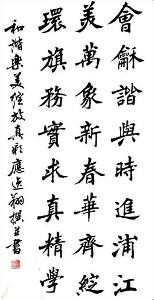 會龢諧與時進浦江
美萬象新春華齊綻
環旗務實求真精學
和諧樂美經放真彩應迮翔撰並書